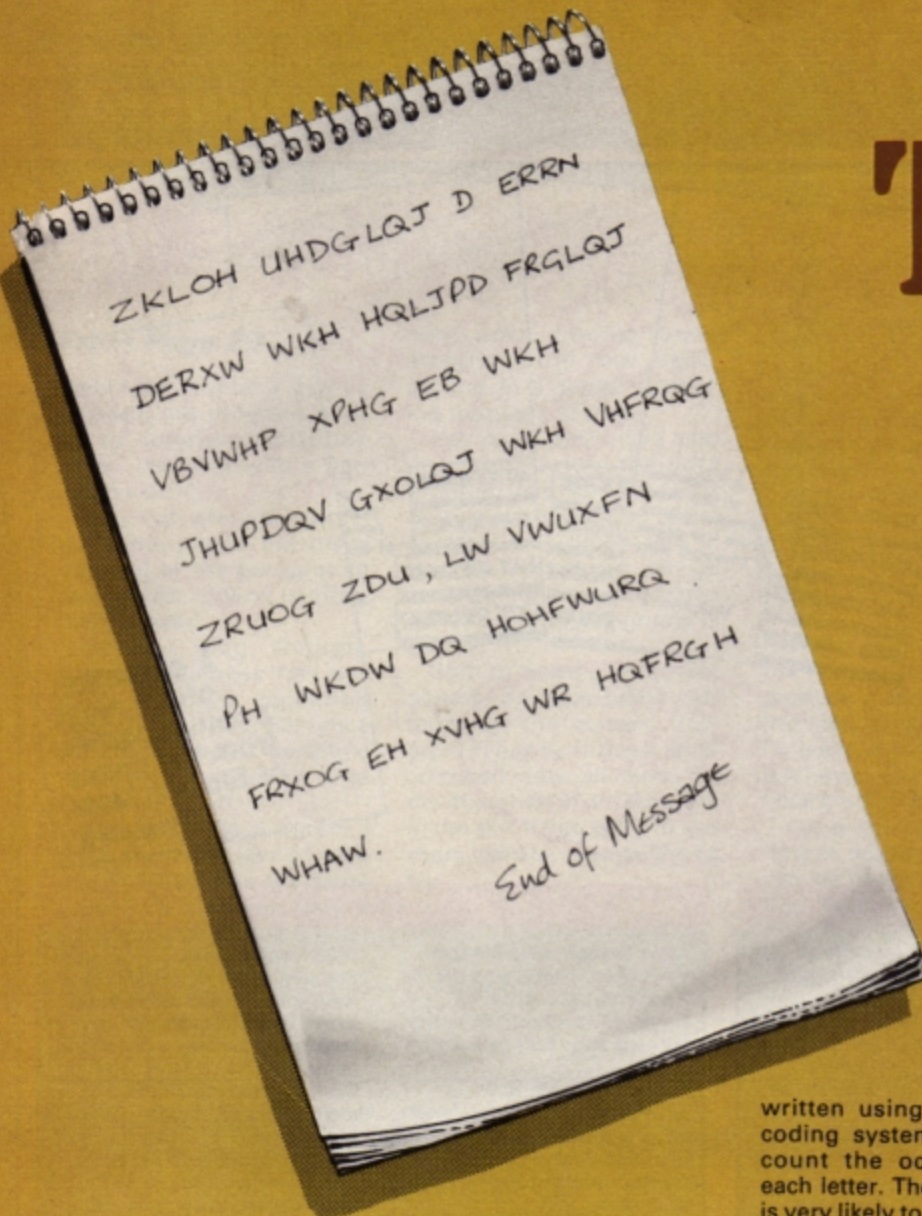 T
ZKLOH UHDGLQJ D ERRN
DERXW WKH HQLJPD FRGLQJ
VBVWHP XPHG EB WKH
JHUPDQV GXOLQJ WKH VHFRQG
ZRUOG ZDU, LW VWUXFN
PH WKDW DQ HOHFWURQ
FRXOG EH XVHG WR HQFRGH
WHAW.
End of Message
written using
coding system
count the oc
each letter. The
is very likely to